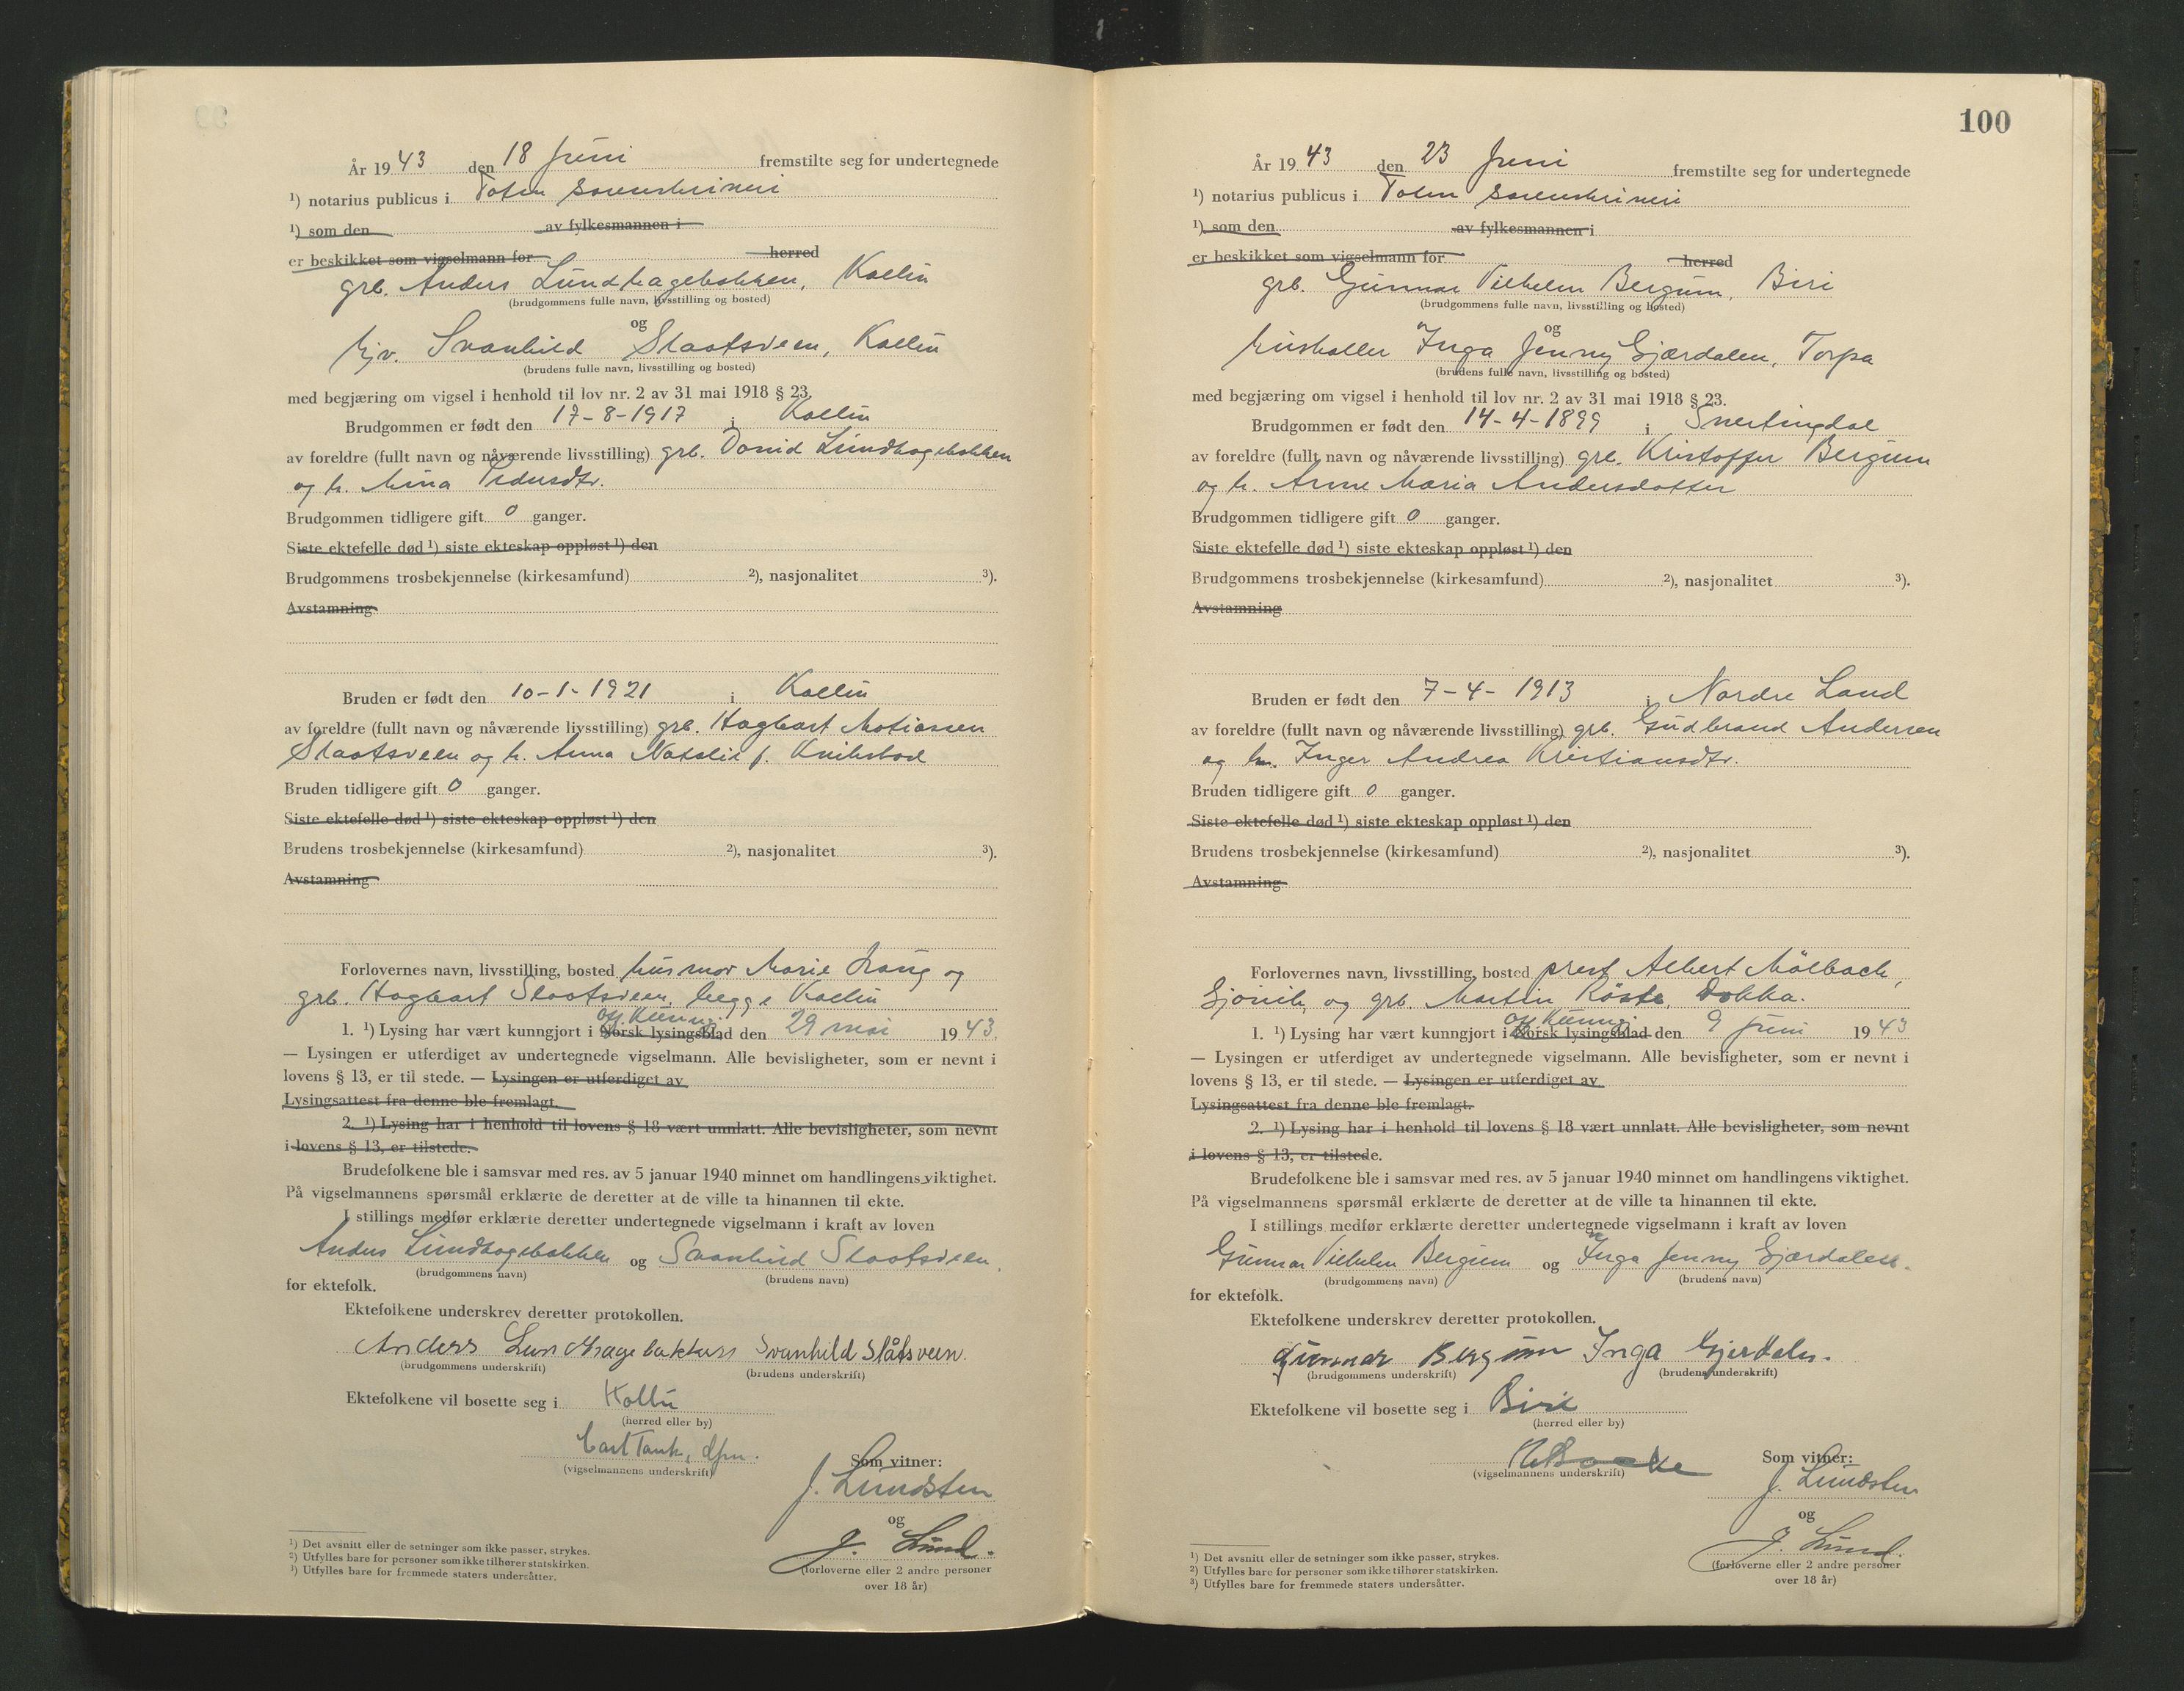 År 19 43 den 18 Juni fremstilte seg for undertegnede
¹) notarius publicus i Toten sorenskriveri
¹) som den av fylkesmannen i
er beskikket som vigselmann for herred
grb. Anders Lundhagebakken, Kolbu
(brudgommens fulle navn, livsstilling og bosted)
og
hjv. Svanhild Slaatsveen, Kolbu
(brudens fulle navn, livsstilling og bosted)
med begjæring om vigsel i henhold til lov nr. 2 av 31 mai 1918 § 23.
Brudgommen er født den 17-8-1917 i Kolbu
av foreldre (fullt navn og nåværende livsstilling) grb. David Lundhagebakken
og h. Mina Pedersdtr.
Brudgommen tidligere gift 0 ganger.
Siste ektefelle død ¹) siste ekteskap oppløst ¹) den
Brudgommens trosbekjennelse (kirkesamfund) ²), nasjonalitet ³).
Avstamning
Bruden er født den 10-1-1921 i Kolbu
av foreldre (fullt navn og nåværende livsstilling) grb. Hagbart Matiassen
Slaatsveen og h. Anna Natalie f.
Bruden tidligere gift 0 ganger.
Siste ektefelle død ¹) siste ekteskap oppløst ¹) den
Brudens trosbekjennelse (kirkesamfund) ²), nasjonalitet ³).
Avstamning
Forlovernes navn, livsstilling, bosted husmor Marie og
grb. Hagbart Slaatsveen, begge Kolbu
1. ¹) Lysing har vært kunngjort i Norsk lysingsblad off. kunngj. den 29 mai 19 43.
— Lysingen er utferdiget av undertegnede vigselmann. Alle bevisligheter, som er nevnt i
lovens § 13, er til stede. — Lysingen er utferdiget av
Lysingsattest fra denne ble fremlagt.
2. ¹) Lysing har i henhold til lovens § 18 vært unnlatt. Alle bevisligheter, som nevnt
i lovens § 13, er tilstede.
Brudefolkene ble i samsvar med res. av 5 januar 1940 minnet om handlingens viktighet.
På vigselmannens spørsmål erklærte de deretter at de ville ta hinannen til ekte.
I stillings medfør erklærte deretter undertegnede vigselmann i kraft av loven
Anders Lundhagebakken og Svanhild Slaatsveen.
(brudgommens navn) (brudens navn)
for ektefolk.
Ektefolkene underskrev deretter protokollen.
Anders Lundhagebakken Svanhild Slåtsveen.
(brudgommens underskrift) (brudens underskrift)
Ektefolkene vil bosette seg i Kolbu
(herred eller by)
Carl Tank, dfm.
(vigselmannens underskrift)
Som vitner:
J. Lundsten
og
J. Lund.
(forloverne eller 2 andre personer
over 18 år)
¹) Det avsnitt eller de setninger som ikke passer, strykes.
²) Utfylles bare for personer som ikke tilhører statskirken.
³) Utfylles bare for fremmede staters undersåtter.
100
År 19 43 den 23 Juni fremstilte seg for undertegnede
¹) notarius publicus i Toten sorenskriveri
¹) som den av fylkesmannen i
er beskikket som vigselmann for herred
grb. Gunnar Vilhelm Bergum, Biri
(brudgommens fulle navn, livsstilling og bosted)
og
husholler Inga Jenny Gjærdalen, Torpa
(brudens fulle navn, livsstilling og bosted)
med begjæring om vigsel i henhold til lov nr. 2 av 31 mai 1918 § 23.
Brudgommen er født den 14-4-1899 i Snertingdal
av foreldre (fullt navn og nåværende livsstilling) grb. Kristoffer Bergum
og h. Anne Maria Andersdatter
Brudgommen tidligere gift 0 ganger.
Siste ektefelle død ¹) siste ekteskap oppløst ¹) den
Brudgommens trosbekjennelse (kirkesamfund) ²), nasjonalitet ³).
Avstamning
Bruden er født den 7-4-1913 i Nordre Land
av foreldre (fullt navn og nåværende livsstilling) grb. Gudbrand Andersen
og h. Inger Andrea Kristiansdtr.
Bruden tidligere gift 0 ganger.
Siste ektefelle død ¹) siste ekteskap oppløst ¹) den
Brudens trosbekjennelse (kirkesamfund) ²), nasjonalitet ³).
Avstamning
Forlovernes navn, livsstilling, bosted prest Albert Mølbach,
Gjøvik, og grb. Martin Røste, Dokka.
1. ¹) Lysing har vært kunngjort i Norsk lysingsblad off. kunngj. den 9 Juni 19 43
— Lysingen er utferdiget av undertegnede vigselmann. Alle bevisligheter, som er nevnt i
lovens § 13, er til stede. — Lysingen er utferdiget av
Lysingsattest fra denne ble fremlagt.
2. ¹) Lysing har i henhold til lovens § 18 vært unnlatt. Alle bevisligheter, som nevnt
i lovens § 13, er tilstede.
Brudefolkene ble i samsvar med res. av 5 januar 1940 minnet om handlingens viktighet.
På vigselmannens spørsmål erklærte de deretter at de ville ta hinannen til ekte.
I stillings medfør erklærte deretter undertegnede vigselmann i kraft av loven
Gunnar Vilhelm Bergum og Inga Jenny Gjærdalen.
(brudgommens navn) (brudens navn)
for ektefolk.
Ektefolkene underskrev deretter protokollen.
Gunnar Bergum Inga Gjerdalen.
(brudgommens underskrift) (brudens underskrift)
Ektefolkene vil bosette seg i Biri
(herred eller by)
(vigselmannens underskrift)
Som vitner:
J. Lundsten
og
J. Lund.
(forloverne eller 2 andre personer
over 18 år)
¹) Det avsnitt eller de setninger som ikke passer, strykes.
²) Utfylles bare for personer som ikke tilhører statskirken.
³) Utfylles bare for fremmede staters undersåtter.